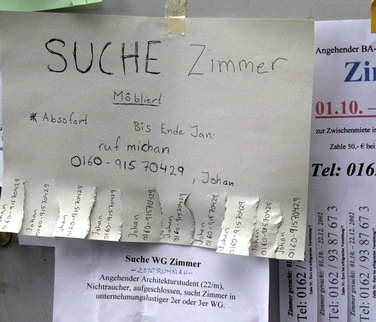 SUCHE Zimmer
Möbliert
* Absofort Bis Ende Jan:
ruf michan
0160-915 70429, Johan
Johan 0160-91570429
Johan 0160-91570429
Johan 0160-91570429
Johan 0160-91570429
Johan 0160-91570429
Johan 0160-91570429
Johan 0160-91570429
Johan 0160-91570429
Johan 0160-91570429
Suche WG Zimmer
-ZENTRUMNAH-
Angehender Architekturstudent (22/m),
Nichtraucher, aufgeschlossen, sucht Zimmer in
unternehmungslustiger 2er oder 3er WG.
Angehender BA-
Zi
01.10. –
zur Zwischenmiete in
Zahle 50,- € bei
Tel: 0162
Tel: 0162 / 93 87 67 3
Tel: 0162 / 93 87 67 3